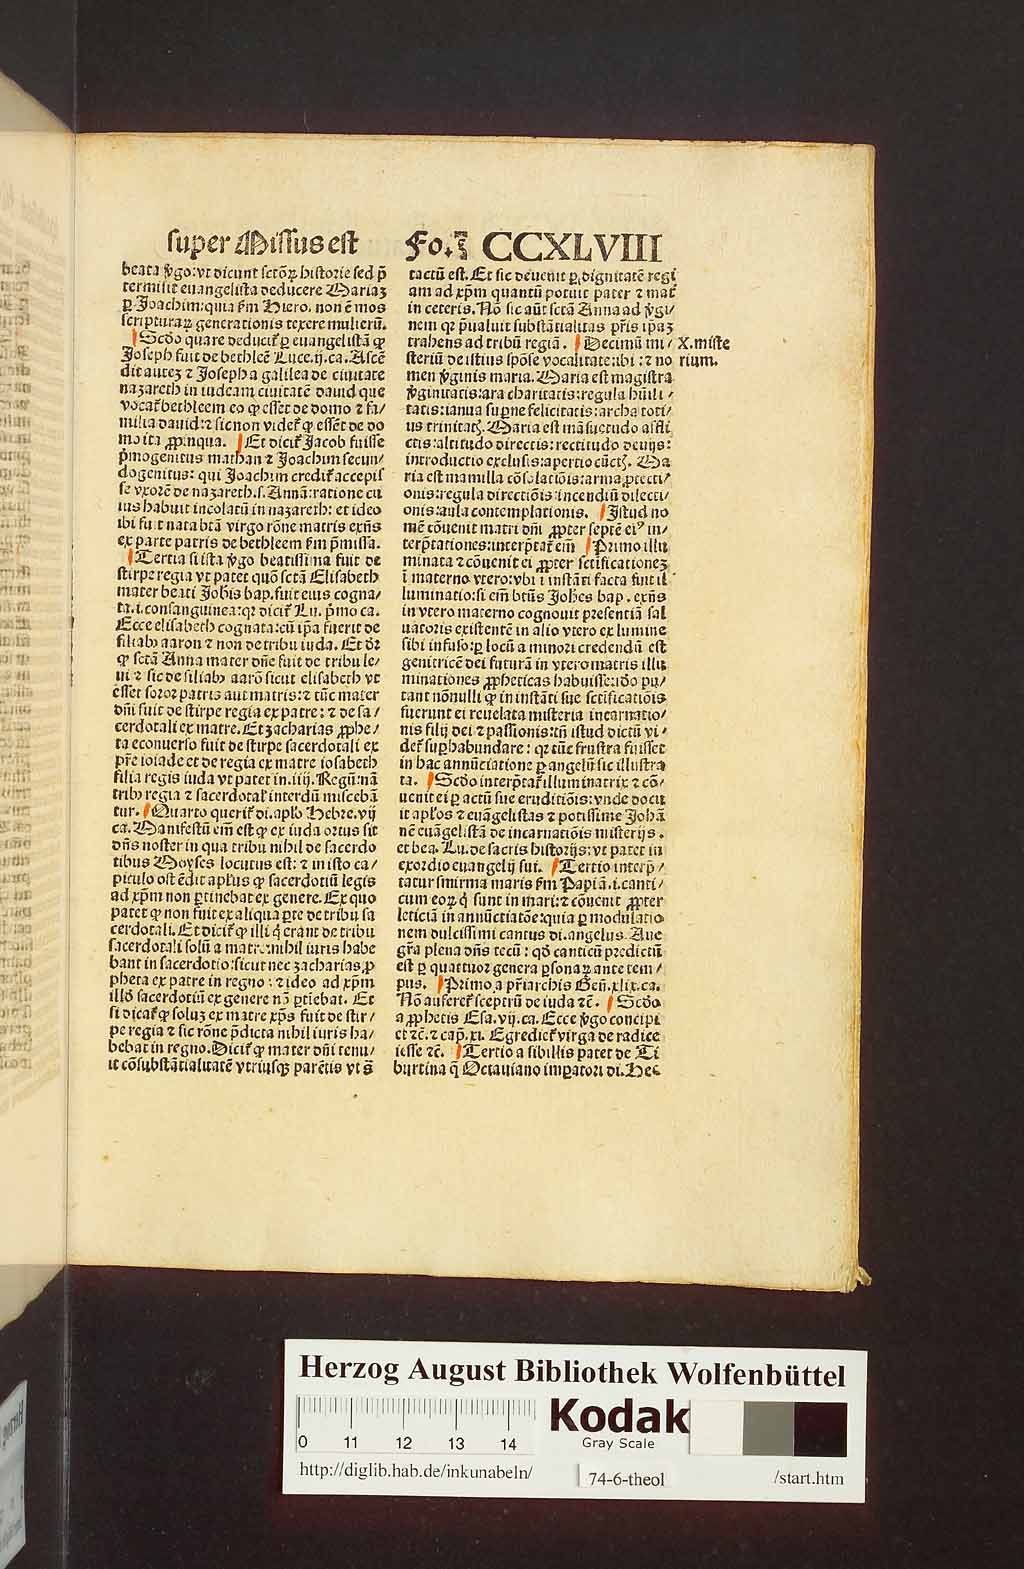 super Missus est
Fo. CCXLVIII
beata v̾go: vt dicunt sctōꝝ historie sed p̄
termisit euangelista deducere Mariaꝫ
ꝑ Joachim: quia ẜm Hiero. non ē mos
scripturaꝝ generationis texere mulierū.
Scđo quare deducit̃ ꝑ euangelistā ꝙ
Joseph fuit de bethleē Luce.ij.ca. Ascē
dit auteꝫ ⁊ Joseph a galilea de ciuitate
nazareth in iudeam ciuitatē dauid que
vocat̃ bethleem eo ꝙ esset de domo ⁊ fa/
milia dauid: ⁊ sic non videt̃ ꝙ essēt de do
mo ita ꝓpinqua. Et dicit̃ Jacob fuisse
p̄mogenitus mathan ⁊ Joachim secun/
dogenitus: qui Joachim credit̃ accepis
se vxorē de nazareth.s. Annā: ratione cu
ius habuit incolatū in nazareth: et ideo
ibi fuit nata btā virgo rōne matris exn̄s
ex parte patris de bethleem ẜm p̄missa.
Tertia si ista v̾go beatissima fuit de
stirpe regia vt patet quō sctā Elisabeth
mater beati Joh̄is bap. fuit eius cogna/
ta.i. consanguinea: qꝛ dicit̃ Lu. p̄mo ca.
Ecce elisabeth cognata: cū ip̄a fuerit de
filiabꝰ aaron ⁊ non de tribu iuda. Et dr̄
ꝙ sctā Anna mater dn̄e fuit de tribu le/
ui ⁊ sic de filiabꝰ aarō sicut elisabeth vt
ēsset soror patris aut matris: ⁊ tūc mater
dn̄i fuit de stirpe regia ex patre: ⁊ de sa/
cerdotali ex matre. Et zacharias ꝓphe/
ta econuerso fuit de stirpe sacerdotali ex
pr̄e ioiade et de regia ex matre iosabeth
filia regis iuda vt patet in.iiij. Regū: nā
tribꝰ regia ⁊ sacerdotal̃ interdū miscebā
tur. Quarto querit̃ di. apl̃o Hebre.vij
ca. Manifestū em̄ est ꝙ ex iuda ortus sit
dn̄s noster in qua tribu nihil de sacerdo
tibus Moyses locutus est: ⁊ in isto ca/
pitulo ostēdit apl̃us ꝙ sacerdotiū legis
ad xp̄m non ꝑtinebat ex genere. Ex quo
patet ꝙ non fuit ex aliqua ꝑte de tribu sa
cerdotali. Et dicit̃ ꝙ illi q̄ erant de tribu
sacerdotali solū a matre: nihil iuris habe
bant in sacerdotio: sicut nec zacharias ꝓ
pheta ex patre in regno: ⁊ ideo ad xp̄m
illđ sacerdotiū ex genere nō ꝑtiebat. Et
si dicat̃ ꝙ soluꝫ ex matre xp̄s fuit de stir/
pe regia ⁊ sic rōne p̄dicta nihil iuris ha/
bebat in regno. Dicit̃ ꝙ mater dn̄i tenu/
it cōsubstātialitatē vtriusqꝫ parētis vt s̄
tactū est. Et sic deuenit ꝑ dignitatē regi
am ad xp̄m quantū potuit pater ⁊ mat̃
in ceteris. Nō sic aūt sctā Anna ad v̾gi/
nem qꝛ p̄ualuit substātialitas pr̄is ipaꝫ
trahens ad tribū regiā. Decimū mi/
steriū de istius spōse vocalitate: ibi: ⁊ no
men v̾ginis maria. Maria est magistra
v̾ginitatis: ara charitatis: regula hūili/
tatis: ianua supne felicitatis: archa toti/
us trinitatꝭ. Maria est māsuetudo affli/
ctis: altitudo directis: rectitudo deuijs:
introductio exclusis: apertio cūctꝭ. Ma
ria est mamilla cōsolatiōis: arma ꝓtecti/
onis: regula directiōis: incendiū dilecti/
onis: aula contemplationis. Istud no
mē cōuenit matri dn̄i ꝓpter septē eiꝰ in/
terp̄tationes: interp̄tat̃ em̄ Primo illu
minata ⁊ cōuenit ei ꝓpter sctificationeꝫ
ī materno vtero: vbi ī instāti facta fuit il
luminatio: si em̄ btūs Joh̄es bap. exn̄s
in vtero materno cognouit presentiā sal
uatoris existentē in alio vtero ex lumine
sibi infuso: ꝑ locū a minori credendū est
genitricē dei futurā in vtero matris illu
minationes ꝓpheticas habuisse: iđo pu/
tant nōnulli ꝙ in instāti sue sctificatiōis
fuerunt ei reuelata misteria incarnatio/
nis filij dei ⁊ passionis: tn̄ istud dictū vi/
det̃ suphabundare: qꝛ tūc frustra fuisset
in hac annūciatione ꝑ angelū sic illustra
ta. Scđo interp̄tat̃ illuminatrix ⁊ cō/
uenit ei ꝑ actū sue eruditiōis: vnde docu
it apl̃os ⁊ euāgelistas ⁊ potissime Johā
nē euāgelistā de incarnatiōis misterijs.
et bea. Lu. de sacris historijs: vt patet in
exordio euangelij sui. Tertio interp̄/
tatur smirma maris ẜm Papiā.i. canti/
cum eoꝝ q̄ sunt in mari: ⁊ cōuenit ꝓpter
leticiā in annūctiatōe: quia ꝑ modulatio
nem dulcissimi cantus di. angelus Aue
gr̄a plena dn̄s tecū: qđ canticū predictū
est ꝑ quattuor genera ꝑsonaꝝ ante tem/
pus. Primo a pr̄iarchis Geñ.xlix.ca.
Nō auferet̃ sceptrū de iuda ⁊c̄. Scđo
a ꝓphetis Esa.vij.ca. Ecce v̾go concipi
et ⁊c̄. ⁊ cap̄.xi. Egrediet̃ virga de radice
iesse ⁊c̄. Tertio a sibillis patet de Ti
burtina q̄ Octauiano impatori di. Hec
X. miste
rium.
Herzog August Bibliothek Wolfenbüttel
0 11 12 13 14
Kodak
Gray Scale
http://diglib.hab.de/inkunabeln/
74-6-theol
/start.htm